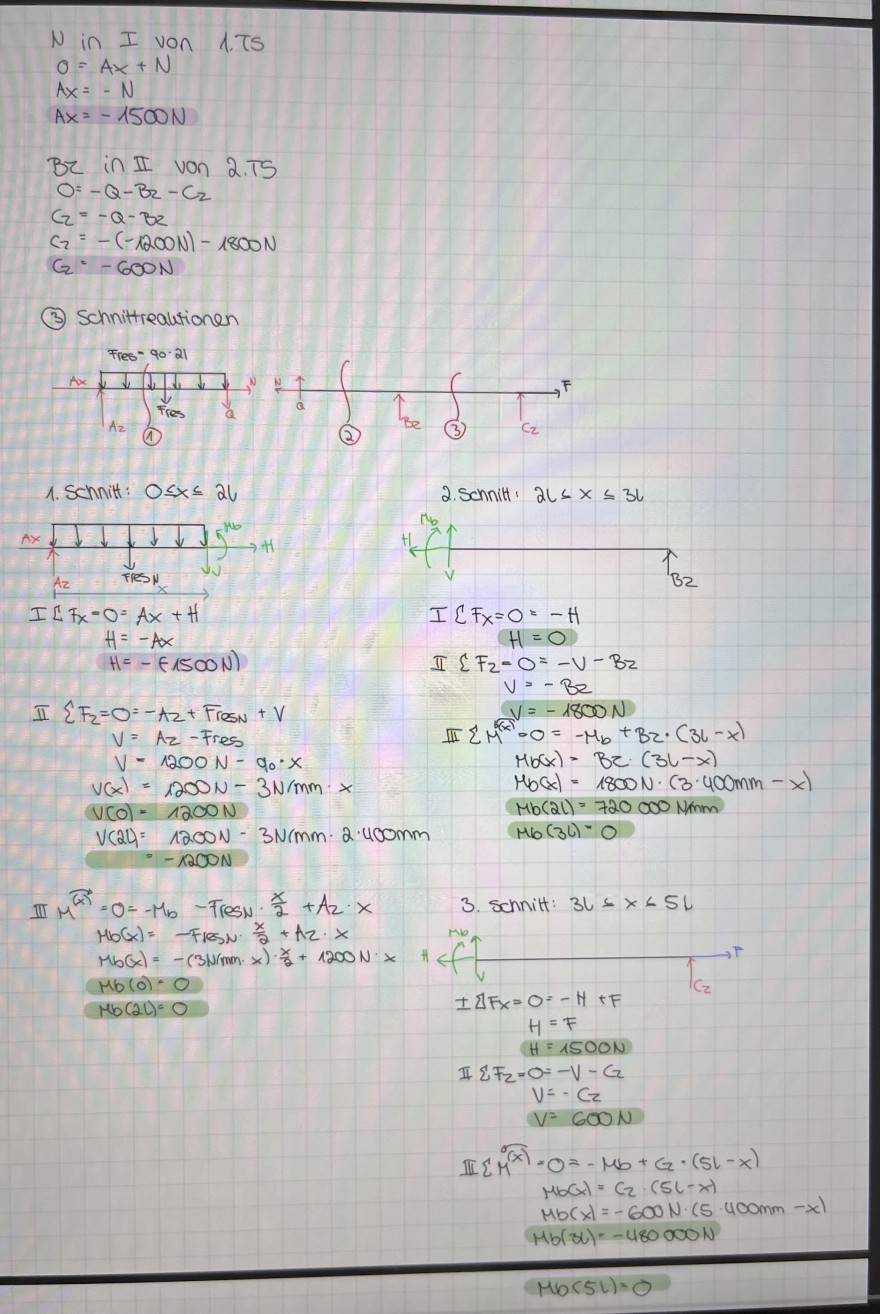 N in I von 1.TS
0 = Ax + N
Ax = - N
Ax = - 1500N
Bz in II von 2.TS
0 = -Q - Bz - Cz
Cz = -Q - Bz
Cz = -(-1200N) - 1800N
Cz = - 600N
③ Schnittreaktionen
Fres = q0·2l
Ax Az ① Fres Q N
N Q ② Bz ③ Cz F
1. Schnitt: 0 ≤ x ≤ 2L
Ax Az FresN x Mb H V
I Σ Fx = 0 = Ax + H
H = -Ax
H = -(-1500N)
II Σ Fz = 0 = -Az + FresN + V
V = Az - Fres
V = 1200N - q0 · x
V(x) = 1200N - 3N/mm · x
V(0) = 1200N
V(2L) = 1200N - 3N/mm · 2·400mm
= -1200N
III M(x) = 0 = -Mb - FresN · x/2 + Az · x
Mb(x) = -FresN · x/2 + Az · x
Mb(x) = -(3N/mm · x) · x/2 + 1200N · x
Mb(0) = 0
Mb(2L) = 0
2. Schnitt: 2L ≤ x ≤ 3L
Mb H V Bz
I Σ Fx = 0 = - H
H = 0
II Σ Fz = 0 = -V - Bz
V = - Bz
V = - 1800N
III Σ M(x) = 0 = -Mb + Bz · (3L - x)
Mb(x) = Bz · (3L - x)
Mb(x) = 1800N · (3·400mm - x)
Mb(2L) = 720 000 Nmm
Mb(3L) = 0
3. Schnitt: 3L ≤ x ≤ 5L
Mb H V F Cz
I Σ Fx = 0 = - H + F
H = F
H = 1500N
II Σ Fz = 0 = -V - Cz
V = - Cz
V = 600N
III Σ M(x) = 0 = - Mb + Cz · (5L - x)
Mb(x) = Cz · (5L - x)
Mb(x) = -600N · (5·400mm - x)
Mb(3L) = -480 000N
Mb(5L) = 0